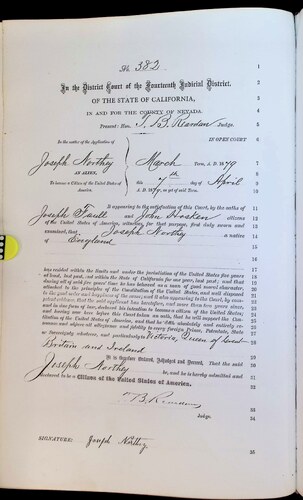 No. 382 1
In the District Court of the Fourteenth Judicial District. 2
OF THE STATE OF CALIFORNIA, 3
IN AND FOR THE COUNTY OF NEVADA. 4
Present: Hon. T. B. Reardan Judge. 5
In the matter of the Application of IN OPEN COURT 6
Joseph Northey March Term, A. D. 1879 7
AN ALIEN, this 7th day of April 8
To become a Citizen of the United States of America. A. D. 1879, as yet of said Term. 9
It appearing to the satisfaction of this Court, by the oaths of 11
Joseph and John Hosken citizens
of the United States of America, witnesses for that purpose, first duly sworn and
examined, that Joseph Northey a native
of England
has resided within the limits and under the jurisdiction of the United States five years
at least, last past, and within the State of California for one year, last past; and that
during all of said five years' time he has behaved as a man of good moral character;
attached to the principles of the Constitution of the United States, and well disposed
to the good order and happiness of the same; and it also appearing to the Court, by
competent evidence, that the said applicant has heretofore, and more than two years since,
and in due form of law, declared his intention to become a citizen of the United States;
and having now here before this Court taken an oath, that he will support the
Constitution of the United States of America, and that he doth absolutely and entirely
renounce and abjure all allegiance and fidelity to every foreign Prince, Potentate, State
or Sovereignty whatever, and particularly to Victoria, Queen of Great
Britain and Ireland
It is therefore Ordered, Adjudged and Decreed, That the said
Joseph Northey be, and he is hereby admitted and
declared to be a Citizen of the United States of America.
T. B. Reardan
Judge. 33
34
SIGNATURE: Joseph Northey 35